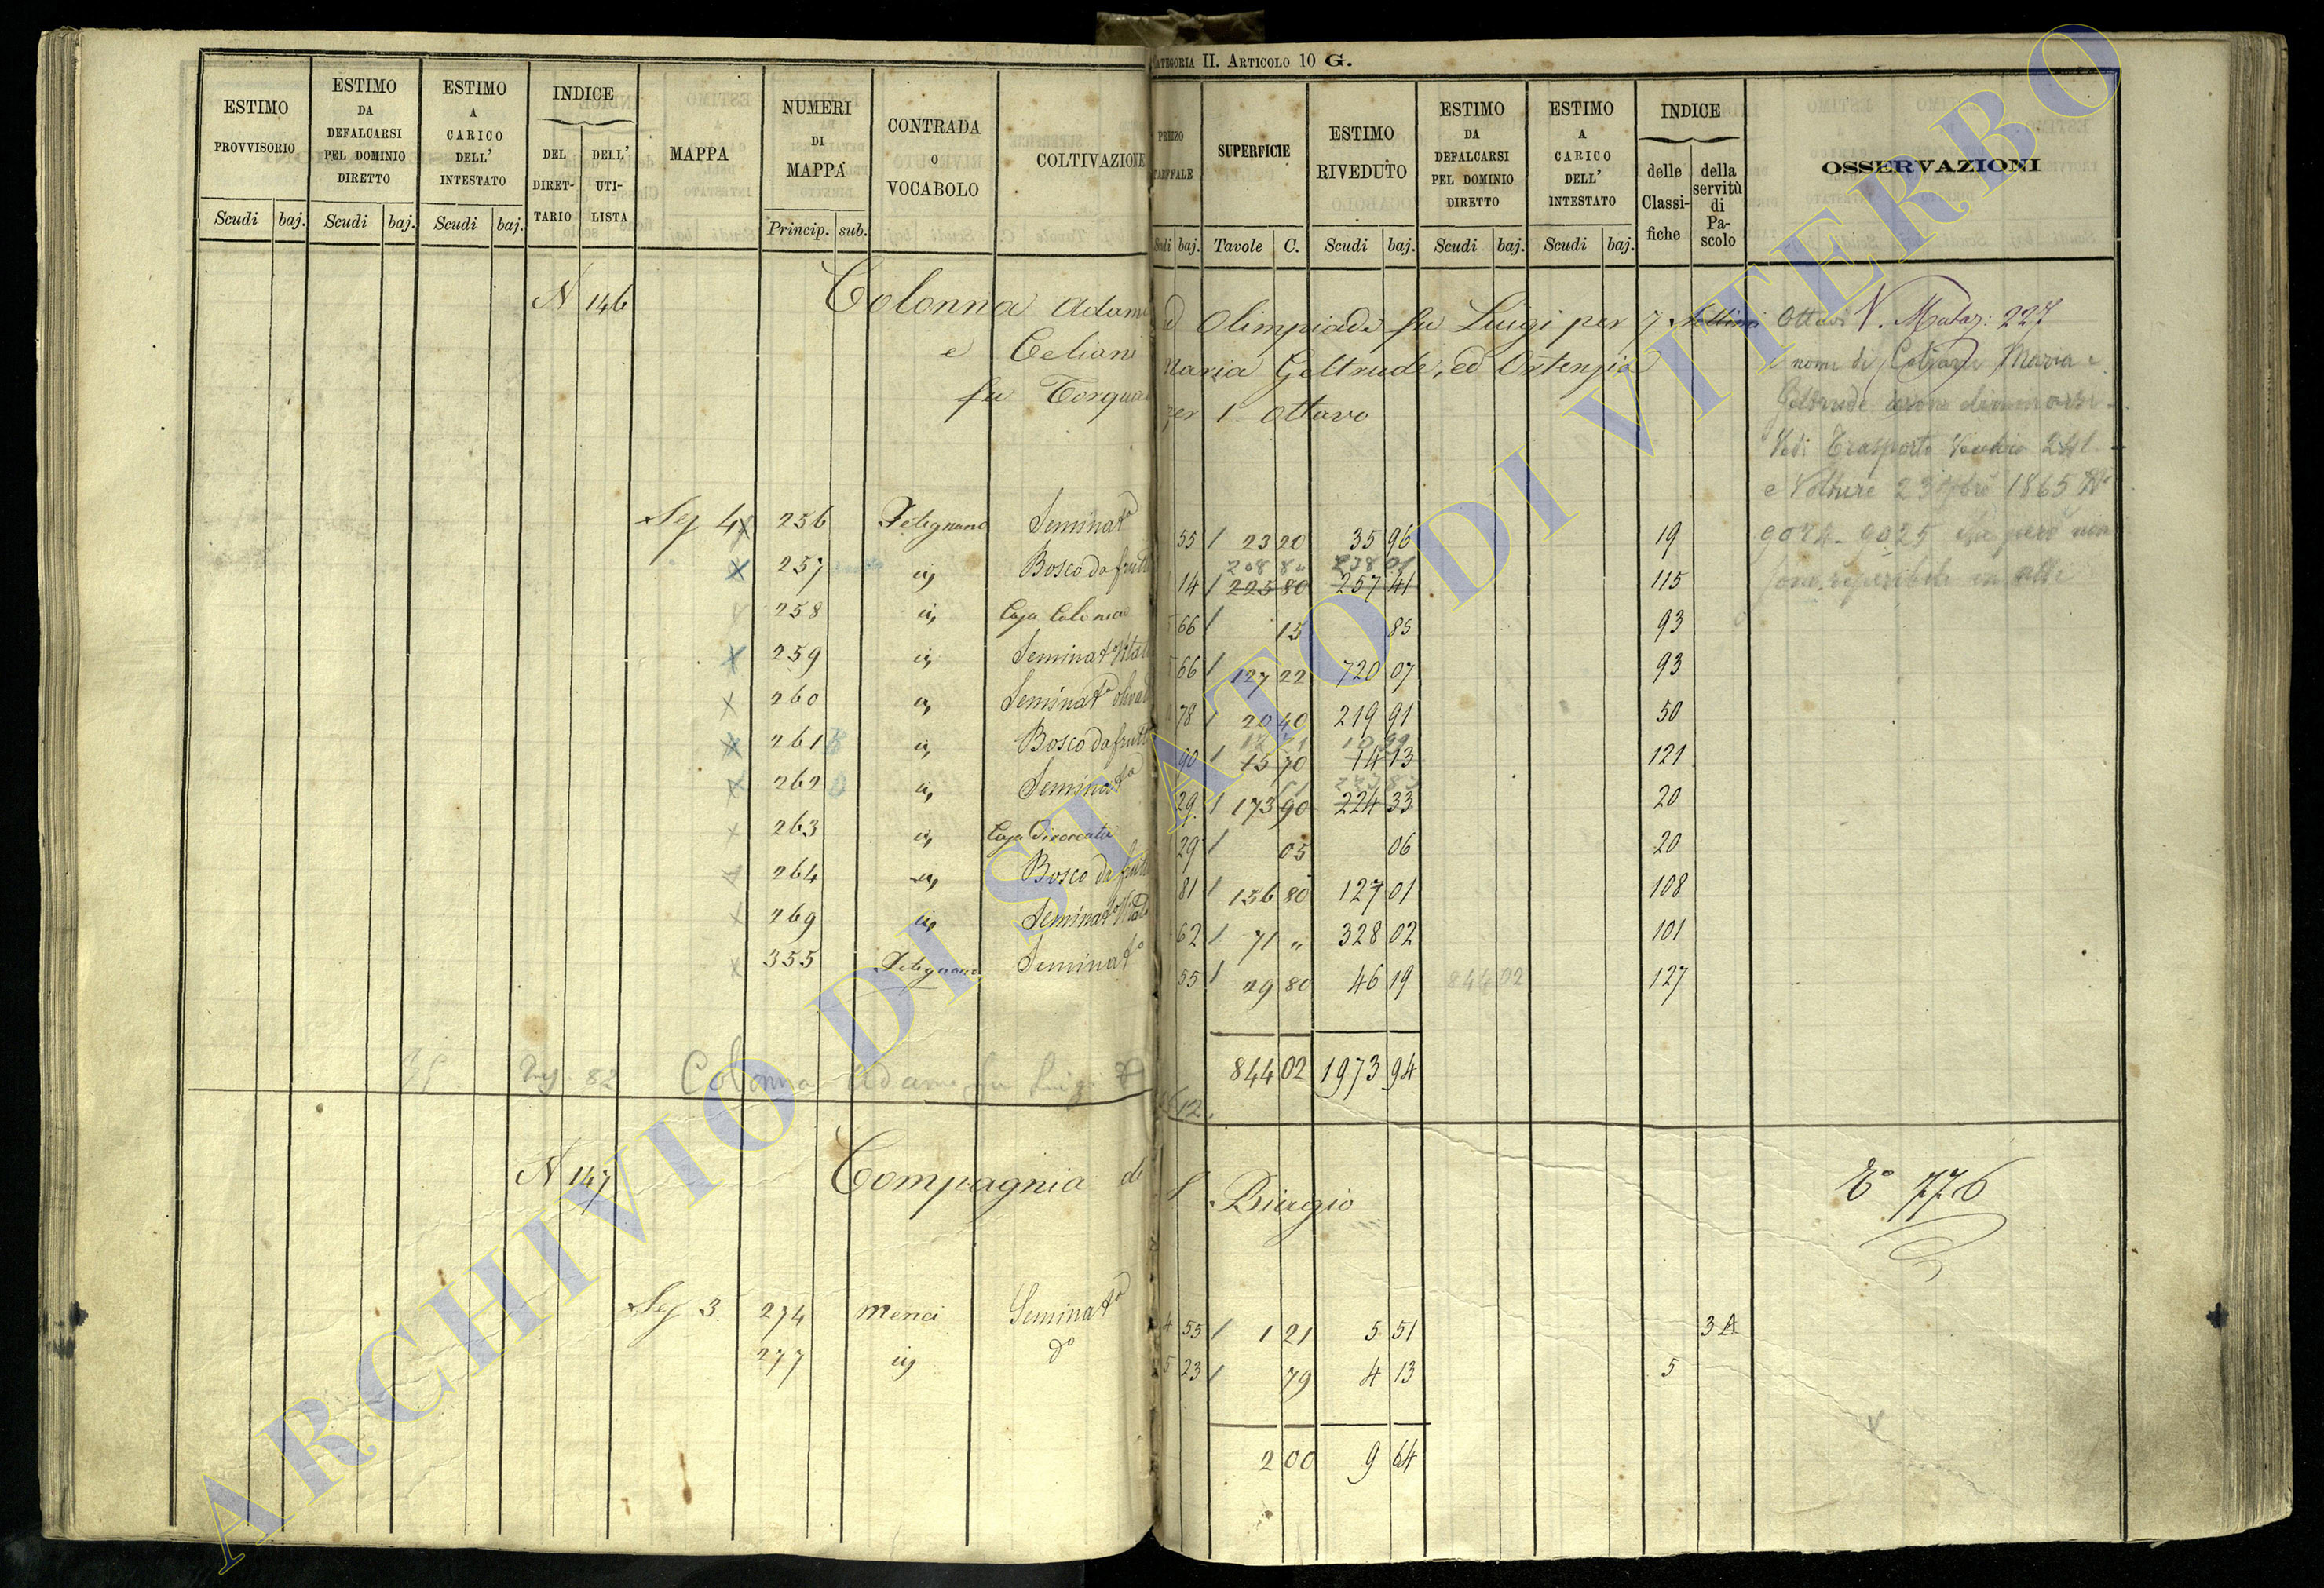 CATEGORIA II. ARTICOLO 10 G.
ESTIMO PROVVISORIO Scudi baj.
ESTIMO DA DEFALCARSI PEL DOMINIO DIRETTO Scudi baj.
ESTIMO A CARICO DELL' INTESTATO Scudi baj.
INDICE DEL DIRETTARIO DELL' UTILISTA
MAPPA
NUMERI DI MAPPA Princip. sub.
CONTRADA O VOCABOLO
COLTIVAZIONE
PREZZO TARIFFALE Scudi baj.
SUPERFICIE Tavole C.
ESTIMO RIVEDUTO Scudi baj.
ESTIMO DA DEFALCARSI PEL DOMINIO DIRETTO Scudi baj.
ESTIMO A CARICO DELL' INTESTATO Scudi baj.
INDICE delle Classifiche della servitù di Pascolo
OSSERVAZIONI
N 146 Colonna Adamo ed Olimpiade fu Luigi per 7 Ottavi V. Mutaz: 227
e Celiani Maria Geltrude, ed Ortenzia
fu Torqua per 1 Ottavo
nome di Maria e
Vedi Trasporto 241
e Volture 23 1865
9025 però non
Sez 4 256 Petignano Seminato 55 / 23 20 35 96 19
208 80 238 01
257 id Bosco da frutto 14 / 225 80 257 41 115
258 id Casa Colonica 66 / 15 85 93
259 id Seminato Vitato 66 / 127 22 720 07 93
260 id Seminato olivato 78 / 20 40 219 91 50
261 id Bosco da frutto 90 / 15 70 14 13 121
262 id Seminato 29 / 173 90 224 33 20
263 id Casa Diroccata 29 / 05 06 20
264 id Bosco da frutto 81 / 156 80 127 01 108
269 id Seminato Vitato 62 / 71 " 328 02 101
355 Petignano Seminato 55 / 29 80 46 19 844 02 127
844 02 1973 94
82 Colonna Adamo fu Luigi
12
N 147 Compagnia di S. Biagio
776
Sez 3 274 Menci Seminato 4 55 / 1 21 5 51 3 A
277 id do 5 23 / 79 4 13 5
2 00 9 64
ARCHIVIO DI STATO DI VITERBO